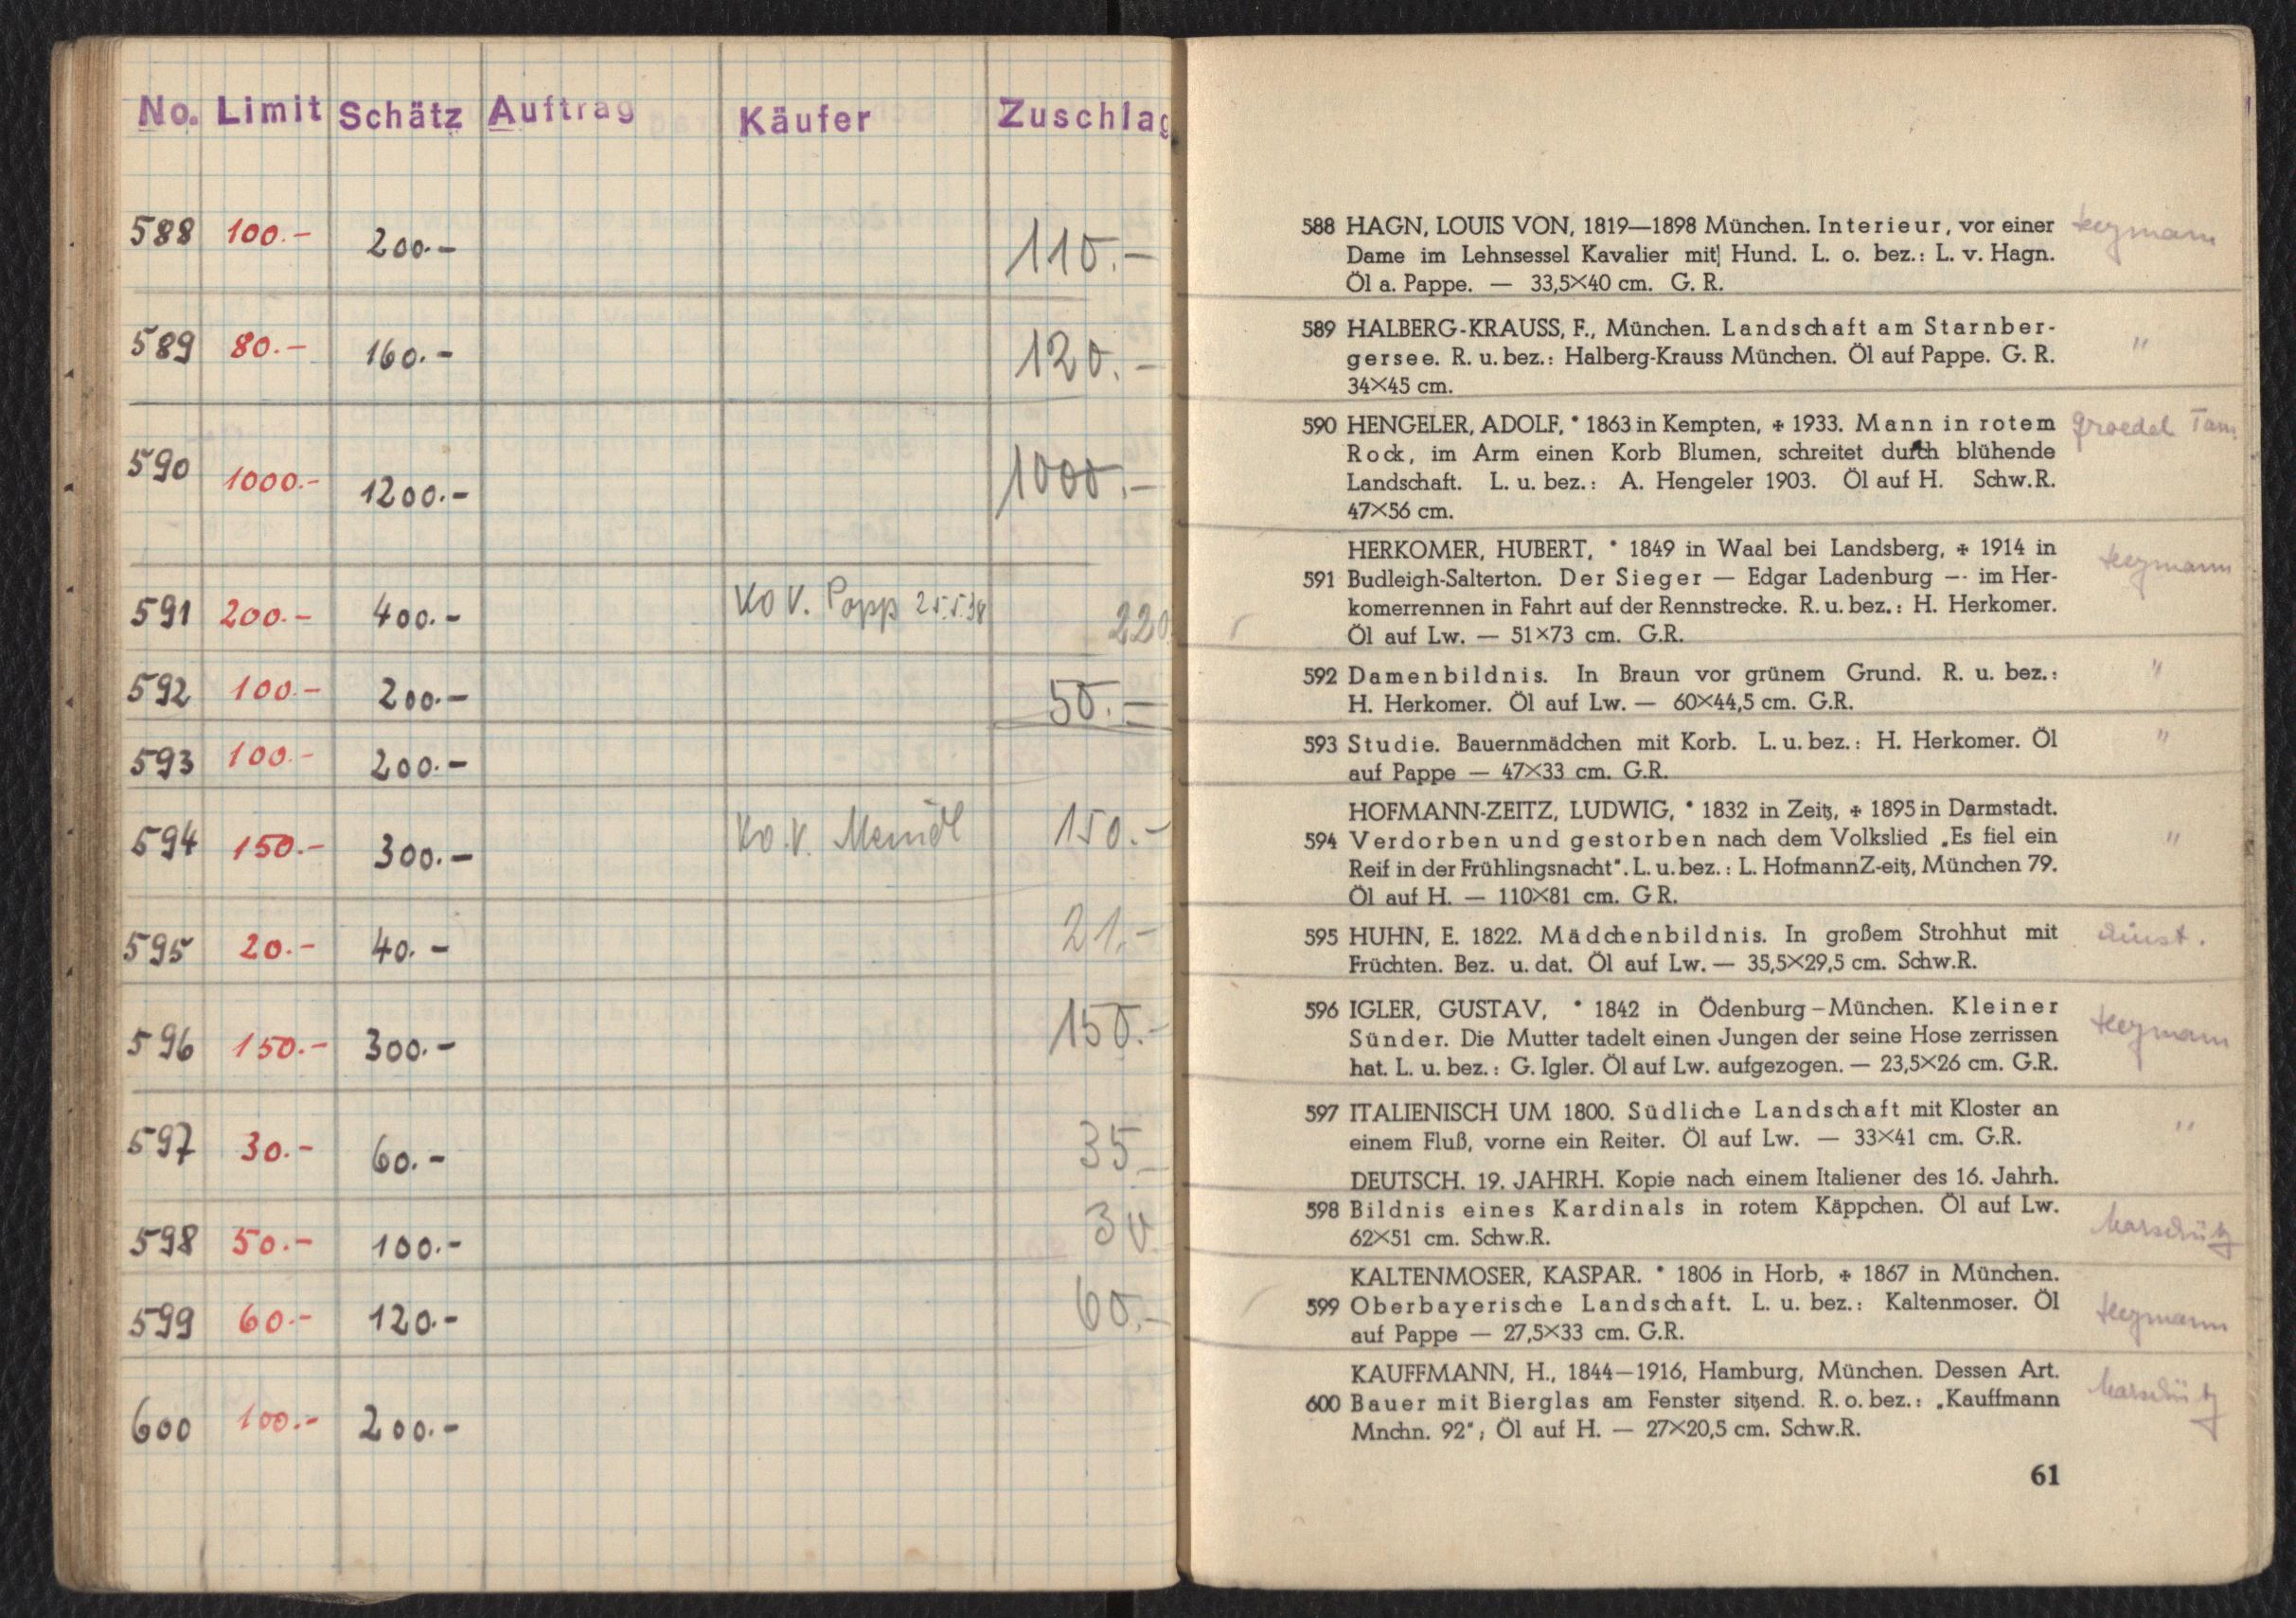 No. Limit Schätz Auftrag Käufer Zuschlag
588 100.- 200.- 110.-
589 80.- 160.- 120.-
590 1000.- 1200.- 1000.-
591 200.- 400.- KO V. Popp 25.5.38 220
592 100.- 200.- 50.-
593 100.- 200.-
594 150.- 300.- KO.V. Meindl 150.-
595 20.- 40.- 21.-
596 150.- 300.- 150.-
597 30.- 60.- 35.-
598 50.- 100.- 30
599 60.- 120.- 60.-
600 100.- 200.-
588 HAGN, LOUIS VON, 1819—1898 München. Interieur, vor einer
Dame im Lehnsessel Kavalier mit Hund. L. o. bez.: L. v. Hagn.
Öl a. Pappe. — 33,5×40 cm. G. R.
589 HALBERG-KRAUSS, F., München. Landschaft am Starnber-
gersee. R. u. bez.: Halberg-Krauss München. Öl auf Pappe. G. R. "
34×45 cm.
590 HENGELER, ADOLF, * 1863 in Kempten, ✠ 1933. Mann in rotem
Rock, im Arm einen Korb Blumen, schreitet durch blühende
Landschaft. L. u. bez.: A. Hengeler 1903. Öl auf H. Schw.R.
47×56 cm.
HERKOMER, HUBERT, * 1849 in Waal bei Landsberg, ✠ 1914 in
591 Budleigh-Salterton. Der Sieger — Edgar Ladenburg — im Her-
komerrennen in Fahrt auf der Rennstrecke. R. u. bez.: H. Herkomer.
Öl auf Lw. — 51×73 cm. G.R.
592 Damenbildnis. In Braun vor grünem Grund. R. u. bez.: "
H. Herkomer. Öl auf Lw. — 60×44,5 cm. G.R.
593 Studie. Bauernmädchen mit Korb. L. u. bez.: H. Herkomer. Öl "
auf Pappe — 47×33 cm. G.R.
HOFMANN-ZEITZ, LUDWIG, * 1832 in Zeitz, ✠ 1895 in Darmstadt.
594 Verdorben und gestorben nach dem Volkslied „Es fiel ein "
Reif in der Frühlingsnacht". L. u. bez.: L. HofmannZ-eitz, München 79.
Öl auf H. — 110×81 cm. G R.
595 HUHN, E. 1822. Mädchenbildnis. In großem Strohhut mit
Früchten. Bez. u. dat. Öl auf Lw. — 35,5×29,5 cm. Schw.R.
596 IGLER, GUSTAV, * 1842 in Ödenburg–München. Kleiner
Sünder. Die Mutter tadelt einen Jungen der seine Hose zerrissen
hat. L. u. bez.: G. Igler. Öl auf Lw. aufgezogen. — 23,5×26 cm. G.R.
597 ITALIENISCH UM 1800. Südliche Landschaft mit Kloster an
einem Fluß, vorne ein Reiter. Öl auf Lw. — 33×41 cm. G.R. "
DEUTSCH. 19. JAHRH. Kopie nach einem Italiener des 16. Jahrh.
598 Bildnis eines Kardinals in rotem Käppchen. Öl auf Lw.
62×51 cm. Schw.R.
KALTENMOSER, KASPAR. * 1806 in Horb, ✠ 1867 in München.
599 Oberbayerische Landschaft. L. u. bez.: Kaltenmoser. Öl
auf Pappe — 27,5×33 cm. G.R.
KAUFFMANN, H., 1844—1916, Hamburg, München. Dessen Art.
600 Bauer mit Bierglas am Fenster sitzend. R. o. bez.: „Kauffmann
Mnchn. 92"; Öl auf H. — 27×20,5 cm. Schw.R.
61